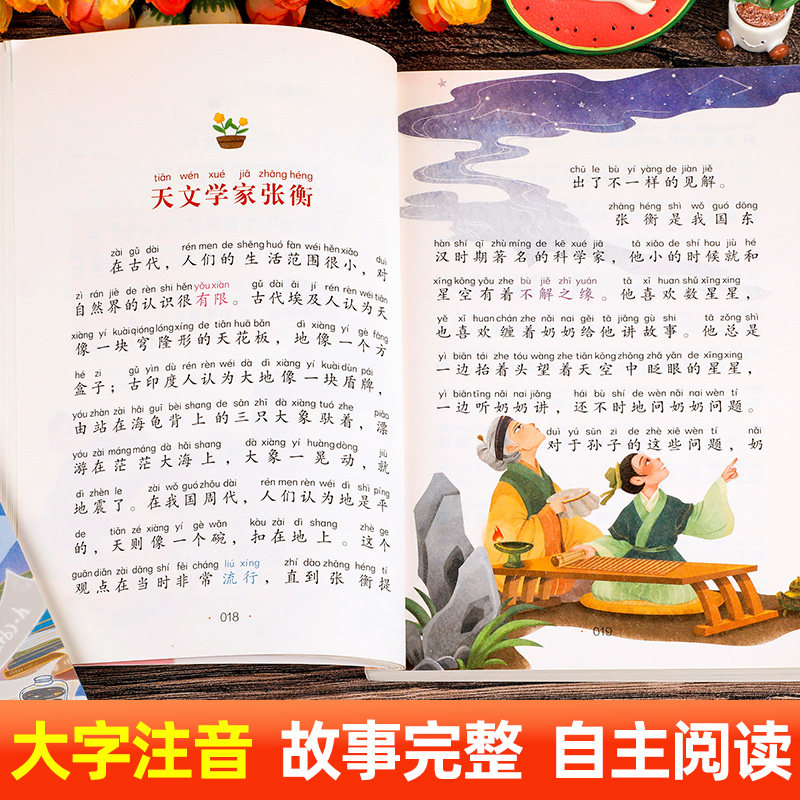 tiān wén xué jiā zhāng héng
天文学家张衡
zài gǔ dài rén men de shēng huó fàn wéi hěn xiǎo duì
在古代，人们的生活范围很小，对
zì rán jiè de rèn shi hěn yǒu xiàn gǔ dài āi jí rén rèn wéi tiān
自然界的认识很有限。古代埃及人认为天
xiàng yí kuài qióng lóng xíng de tiān huā bǎn dì xiàng yí gè fāng
像一块穹隆形的天花板，地像一个方
hé zi gǔ yìn dù rén rèn wéi dà dì xiàng yí kuài dùn pái
盒子；古印度人认为大地像一块盾牌，
yóu zhàn zài hǎi guī bèi shang de sān zhī dà xiàng tuó zhe piāo
由站在海龟背上的三只大象驮着，漂
yóu zài máng máng dà hǎi shang dà xiàng yí huàng dòng jiù
游在茫茫大海上，大象一晃动，就
dì zhèn le zài wǒ guó zhōu dài rén men rèn wéi dì shì píng
地震了。在我国周代，人们认为地是平
de tiān zé xiàng yí gè wǎn kòu zài dì shang zhè ge
的，天则像一个碗，扣在地上。这个
guān diǎn zài dāng shí fēi cháng liú xíng zhí dào zhāng héng tí
观点在当时非常流行，直到张衡提
· 018 ·
chū le bù yí yàng de jiàn jiě
出了不一样的见解。
zhāng héng shì wǒ guó dōng
张衡是我国东
hàn shí qī zhù míng de kē xué jiā tā xiǎo de shí hou jiù hé
汉时期著名的科学家，他小的时候就和
xīng kōng yǒu zhe bù jiě zhī yuán tā xǐ huan shǔ xīng xing
星空有着不解之缘。他喜欢数星星，
yě xǐ huan chán zhe nǎi nai gěi tā jiǎng gù shi tā zǒng shì
也喜欢缠着奶奶给他讲故事。他总是
yì biān tái zhe tóu wàng zhe tiān kōng zhōng zhǎ yǎn de xīng xing
一边抬着头望着天空中眨眼的星星，
yì biān tīng nǎi nai jiǎng hái bù shí de wèn nǎi nai wèn tí
一边听奶奶讲，还不时地问奶奶问题。
duì yú sūn zi de zhè xiē wèn tí nǎi
对于孙子的这些问题，奶
· 019 ·
大字注音 故事完整 自主阅读